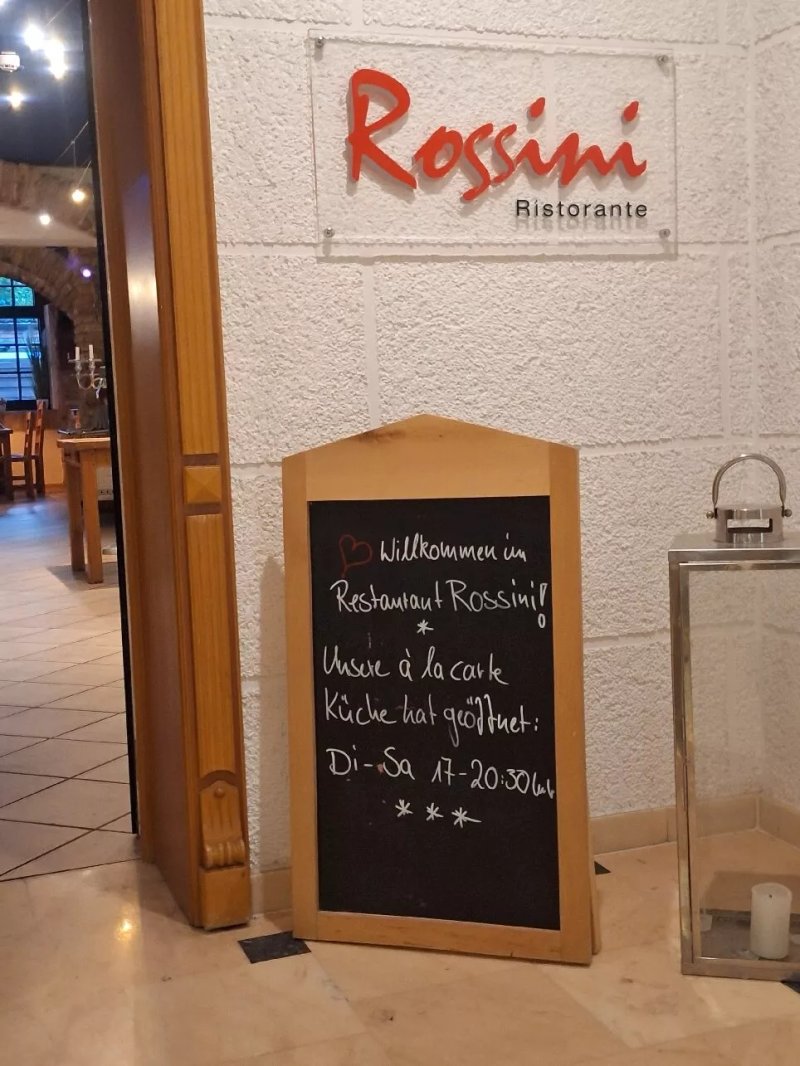 Rossini
Ristorante
Willkommen im
Restaurant Rossini!
*
Unsere à la carte
Küche hat geöffnet:
Di-Sa 17-20:30 Uhr
* * *